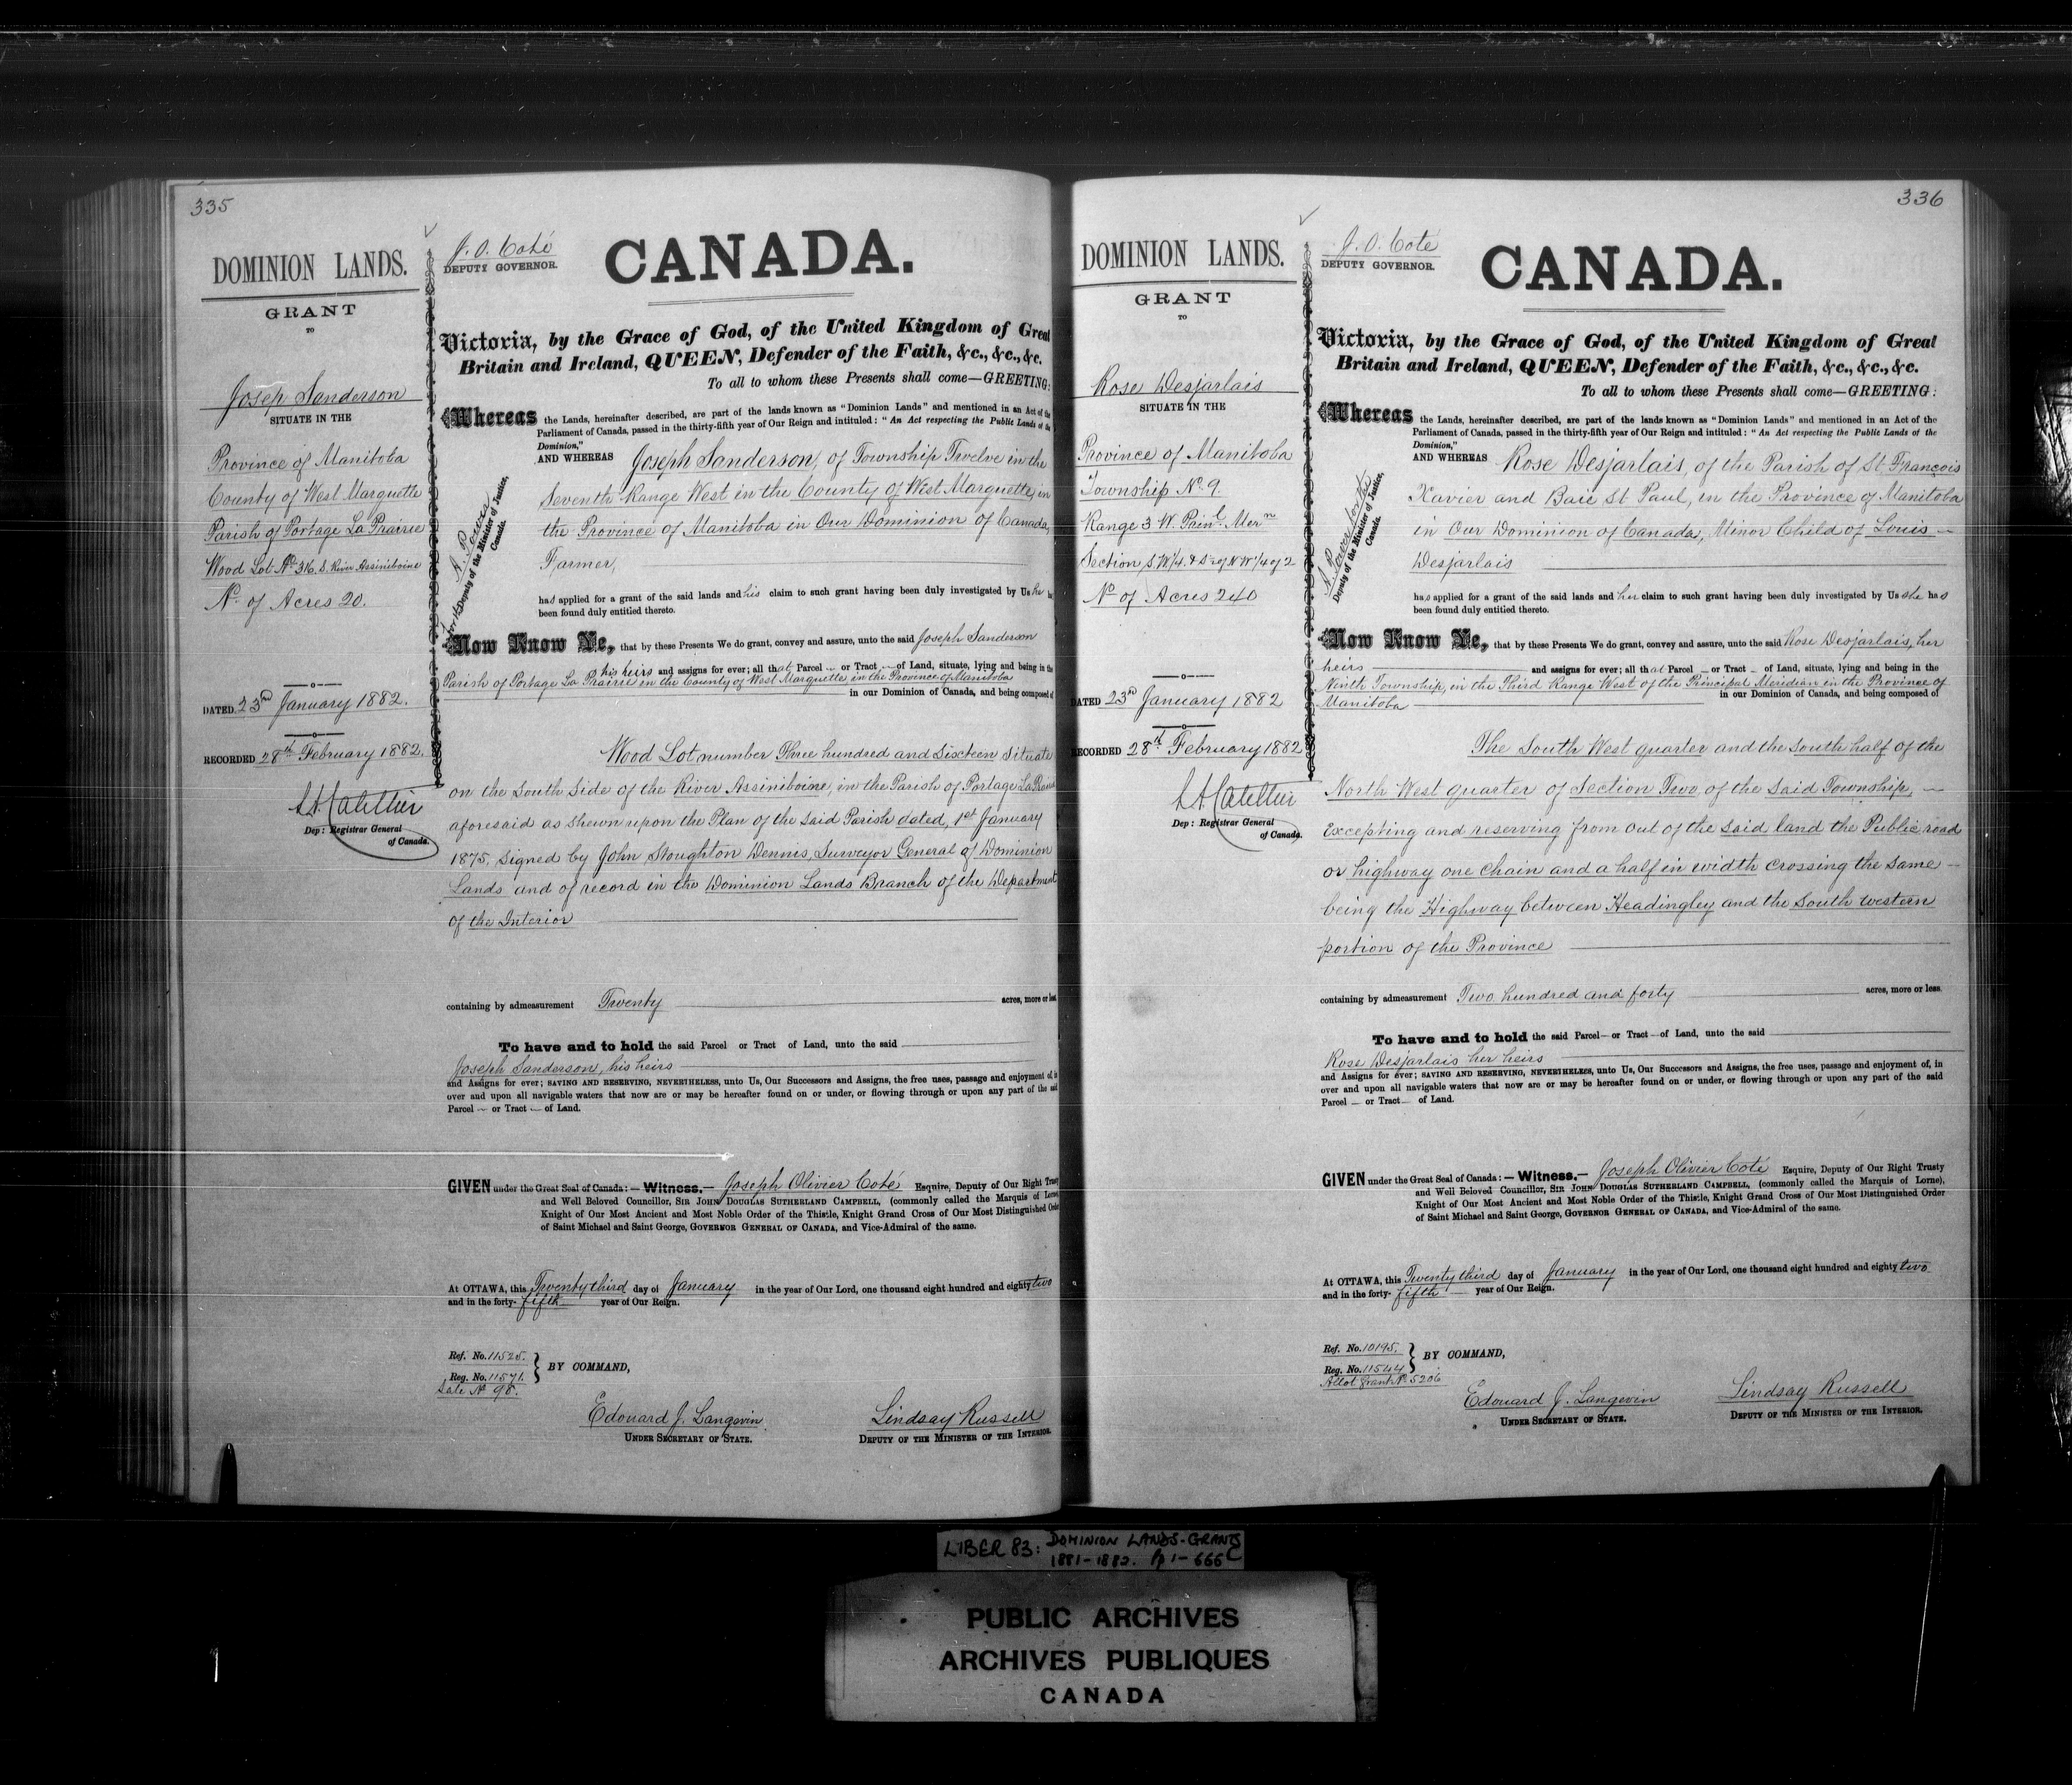 335
DOMINION LANDS.
GRANT
TO
Joseph Sanderson
SITUATE IN THE
Province of Manitoba
County of West Marquette
Parish of Portage La Prairie
Wood Lot No 316. S. River Assiniboine
No of Acres 20.
DATED 23rd January 1882.
RECORDED 28th February 1882.
Dep: Registrar General
of Canada.
J. O. Coté
DEPUTY GOVERNOR.
CANADA.
Victoria, by the Grace of God, of the United Kingdom of Great
Britain and Ireland, QUEEN, Defender of the Faith, &c., &c., &c.
To all to whom these Presents shall come—GREETING:
Whereas the Lands, hereinafter described, are part of the lands known as "Dominion Lands" and mentioned in an Act of the
Parliament of Canada, passed in the thirty-fifth year of Our Reign and intituled: "An Act respecting the Public Lands of the
Dominion,"
AND WHEREAS Joseph Sanderson, of Township Twelve in the
Seventh Range West in the County of West Marquette, in
the Province of Manitoba in Our Dominion of Canada,
Farmer,
A. Power
for the Deputy of the Minister of Justice,
Canada.
has applied for a grant of the said lands and his claim to such grant having been duly investigated by Us he
been found duly entitled thereto.
Now Know Ye, that by these Presents We do grant, convey and assure, unto the said Joseph Sanderson
his heirs and assigns for ever; all that Parcel — or Tract — of Land, situate, lying and being in the
Parish of Portage La Prairie in the County of West Marquette in the Province of Manitoba
in our Dominion of Canada, and being composed of
Wood Lot number Three hundred and Sixteen situate
on the South Side of the River Assiniboine, in the Parish of Portage La Prairie
aforesaid as shewn upon the Plan of the said Parish dated, 1st January
1875, signed by John Stoughton Dennis, Surveyor General of Dominion
Lands and of record in the Dominion Lands Branch of the Department
of the Interior
containing by admeasurement Twenty acres, more or less
To have and to hold the said Parcel or Tract of Land, unto the said
Joseph Sanderson, his heirs
and Assigns for ever; SAVING AND RESERVING, NEVERTHELESS, unto Us, Our Successors and Assigns, the free uses, passage and enjoyment of, in
over and upon all navigable waters that now are or may be hereafter found on or under, or flowing through or upon any part of the said
Parcel — or Tract — of Land.
GIVEN under the Great Seal of Canada:—Witness.— Joseph Olivier Coté Esquire, Deputy of Our Right Trusty
and Well Beloved Councillor, SIR JOHN DOUGLAS SUTHERLAND CAMPBELL, (commonly called the Marquis of Lorne)
Knight of Our Most Ancient and Most Noble Order of the Thistle, Knight Grand Cross of Our Most Distinguished Order
of Saint Michael and Saint George, GOVERNOR GENERAL OF CANADA, and Vice-Admiral of the same.
At OTTAWA, this Twenty third day of January in the year of Our Lord, one thousand eight hundred and eighty two
and in the forty- fifth year of Our Reign.
Ref. No. 11525.
Reg. No. 11571.
Sale No 98.
BY COMMAND,
Edouard J. Langevin
UNDER SECRETARY OF STATE.
Lindsay Russell
DEPUTY OF THE MINISTER OF THE INTERIOR.
336
DOMINION LANDS.
GRANT
TO
Rose Desjarlais
SITUATE IN THE
Province of Manitoba
Township No 9.
Range 3 W. Prinl. Mern
Section S W 1/4. & S 1/2 of N W 1/4 of 2
No of Acres 240
DATED 23rd January 1882
RECORDED 28th February 1882
Dep: Registrar General
of Canada.
J. O. Coté
DEPUTY GOVERNOR.
CANADA.
Victoria, by the Grace of God, of the United Kingdom of Great
Britain and Ireland, QUEEN, Defender of the Faith, &c., &c., &c.
To all to whom these Presents shall come—GREETING:
Whereas the Lands, hereinafter described, are part of the lands known as "Dominion Lands" and mentioned in an Act of the
Parliament of Canada, passed in the thirty-fifth year of Our Reign and intituled: "An Act respecting the Public Lands of the
Dominion,"
AND WHEREAS Rose Desjarlais, of the Parish of St. François
Xavier and Baie St. Paul, in the Province of Manitoba
in Our Dominion of Canada, Minor Child of Louis —
Desjarlais
A. Power for the
Deputy of the Minister of Justice,
Canada.
has applied for a grant of the said lands and her claim to such grant having been duly investigated by Us she has
been found duly entitled thereto.
Now Know Ye, that by these Presents We do grant, convey and assure, unto the said Rose Desjarlais, her
heirs and assigns for ever; all that Parcel — or Tract — of Land, situate, lying and being in the
Ninth Township, in the Third Range West of the Principal Meridian in the Province of
Manitoba in our Dominion of Canada, and being composed of
The South West quarter and the South half of the
North West quarter of Section Two, of the said Township, —
Excepting and reserving from out of the said land the Public road
or highway one chain and a half in width crossing the same —
being the Highway between Headingley and the South western
portion of the Province
containing by admeasurement Two hundred and forty acres, more or less.
To have and to hold the said Parcel— or Tract—of Land, unto the said
Rose Desjarlais her heirs
and Assigns for ever; SAVING AND RESERVING, NEVERTHELESS, unto Us, Our Successors and Assigns, the free uses, passage and enjoyment of, in
over and upon all navigable waters that now are or may be hereafter found on or under, or flowing through or upon any part of the said
Parcel — or Tract — of Land.
GIVEN under the Great Seal of Canada:—Witness.— Joseph Olivier Coté Esquire, Deputy of Our Right Trusty
and Well Beloved Councillor, SIR JOHN DOUGLAS SUTHERLAND CAMPBELL, (commonly called the Marquis of Lorne),
Knight of Our Most Ancient and Most Noble Order of the Thistle, Knight Grand Cross of Our Most Distinguished Order
of Saint Michael and Saint George, GOVERNOR GENERAL OF CANADA, and Vice-Admiral of the same.
At OTTAWA, this Twenty third day of January in the year of Our Lord, one thousand eight hundred and eighty two
and in the forty- fifth year of Our Reign.
Ref. No. 10195.
Reg. No. 11544
Allot Grant No 5206
BY COMMAND,
Edouard J. Langevin
UNDER SECRETARY OF STATE.
Lindsay Russell
DEPUTY OF THE MINISTER OF THE INTERIOR.
LIBER 83: DOMINION LANDS-GRANTS
1881-1882. Pp 1-666
PUBLIC ARCHIVES
ARCHIVES PUBLIQUES
CANADA